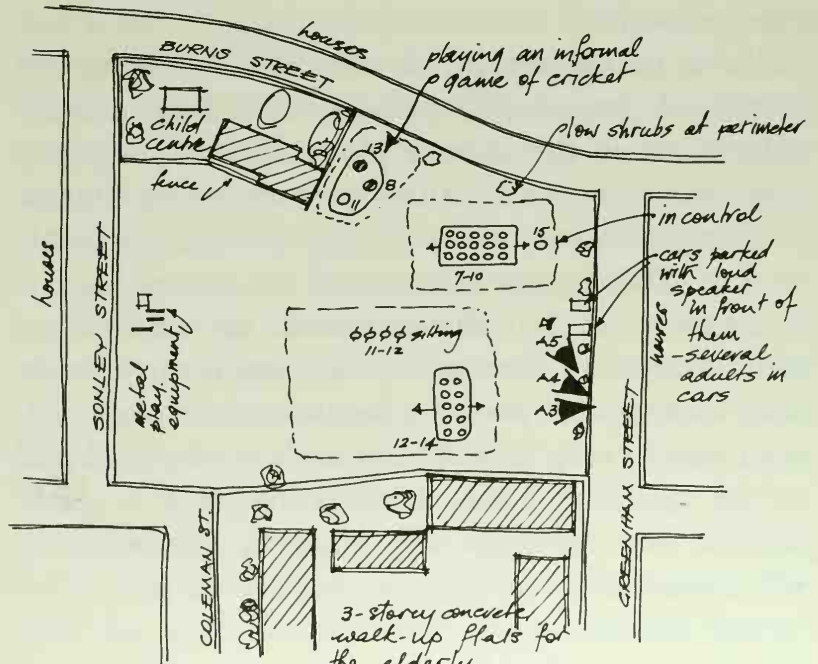 houses
BURNS STREET
playing an informal
game of cricket
low shrubs at perimeter
child
centre
fence
13
8
11
in control
15
7-10
cars parked
with loud
speaker
in front of
them
-several
adults in
cars
houses
SONLEY STREET
metal
play.
equipment
sitting
11-12
12-14
A5
A4
A3
houses
GREENHAM STREET
COLEMAN ST.
3-storey concrete
walk-up flats for
the elderly